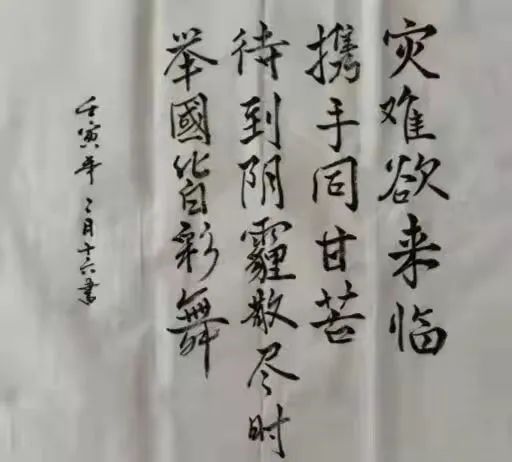 灾难欲来临
携手同甘苦
待到阴霾散尽时
举國皆彩舞
壬寅年二月十六書